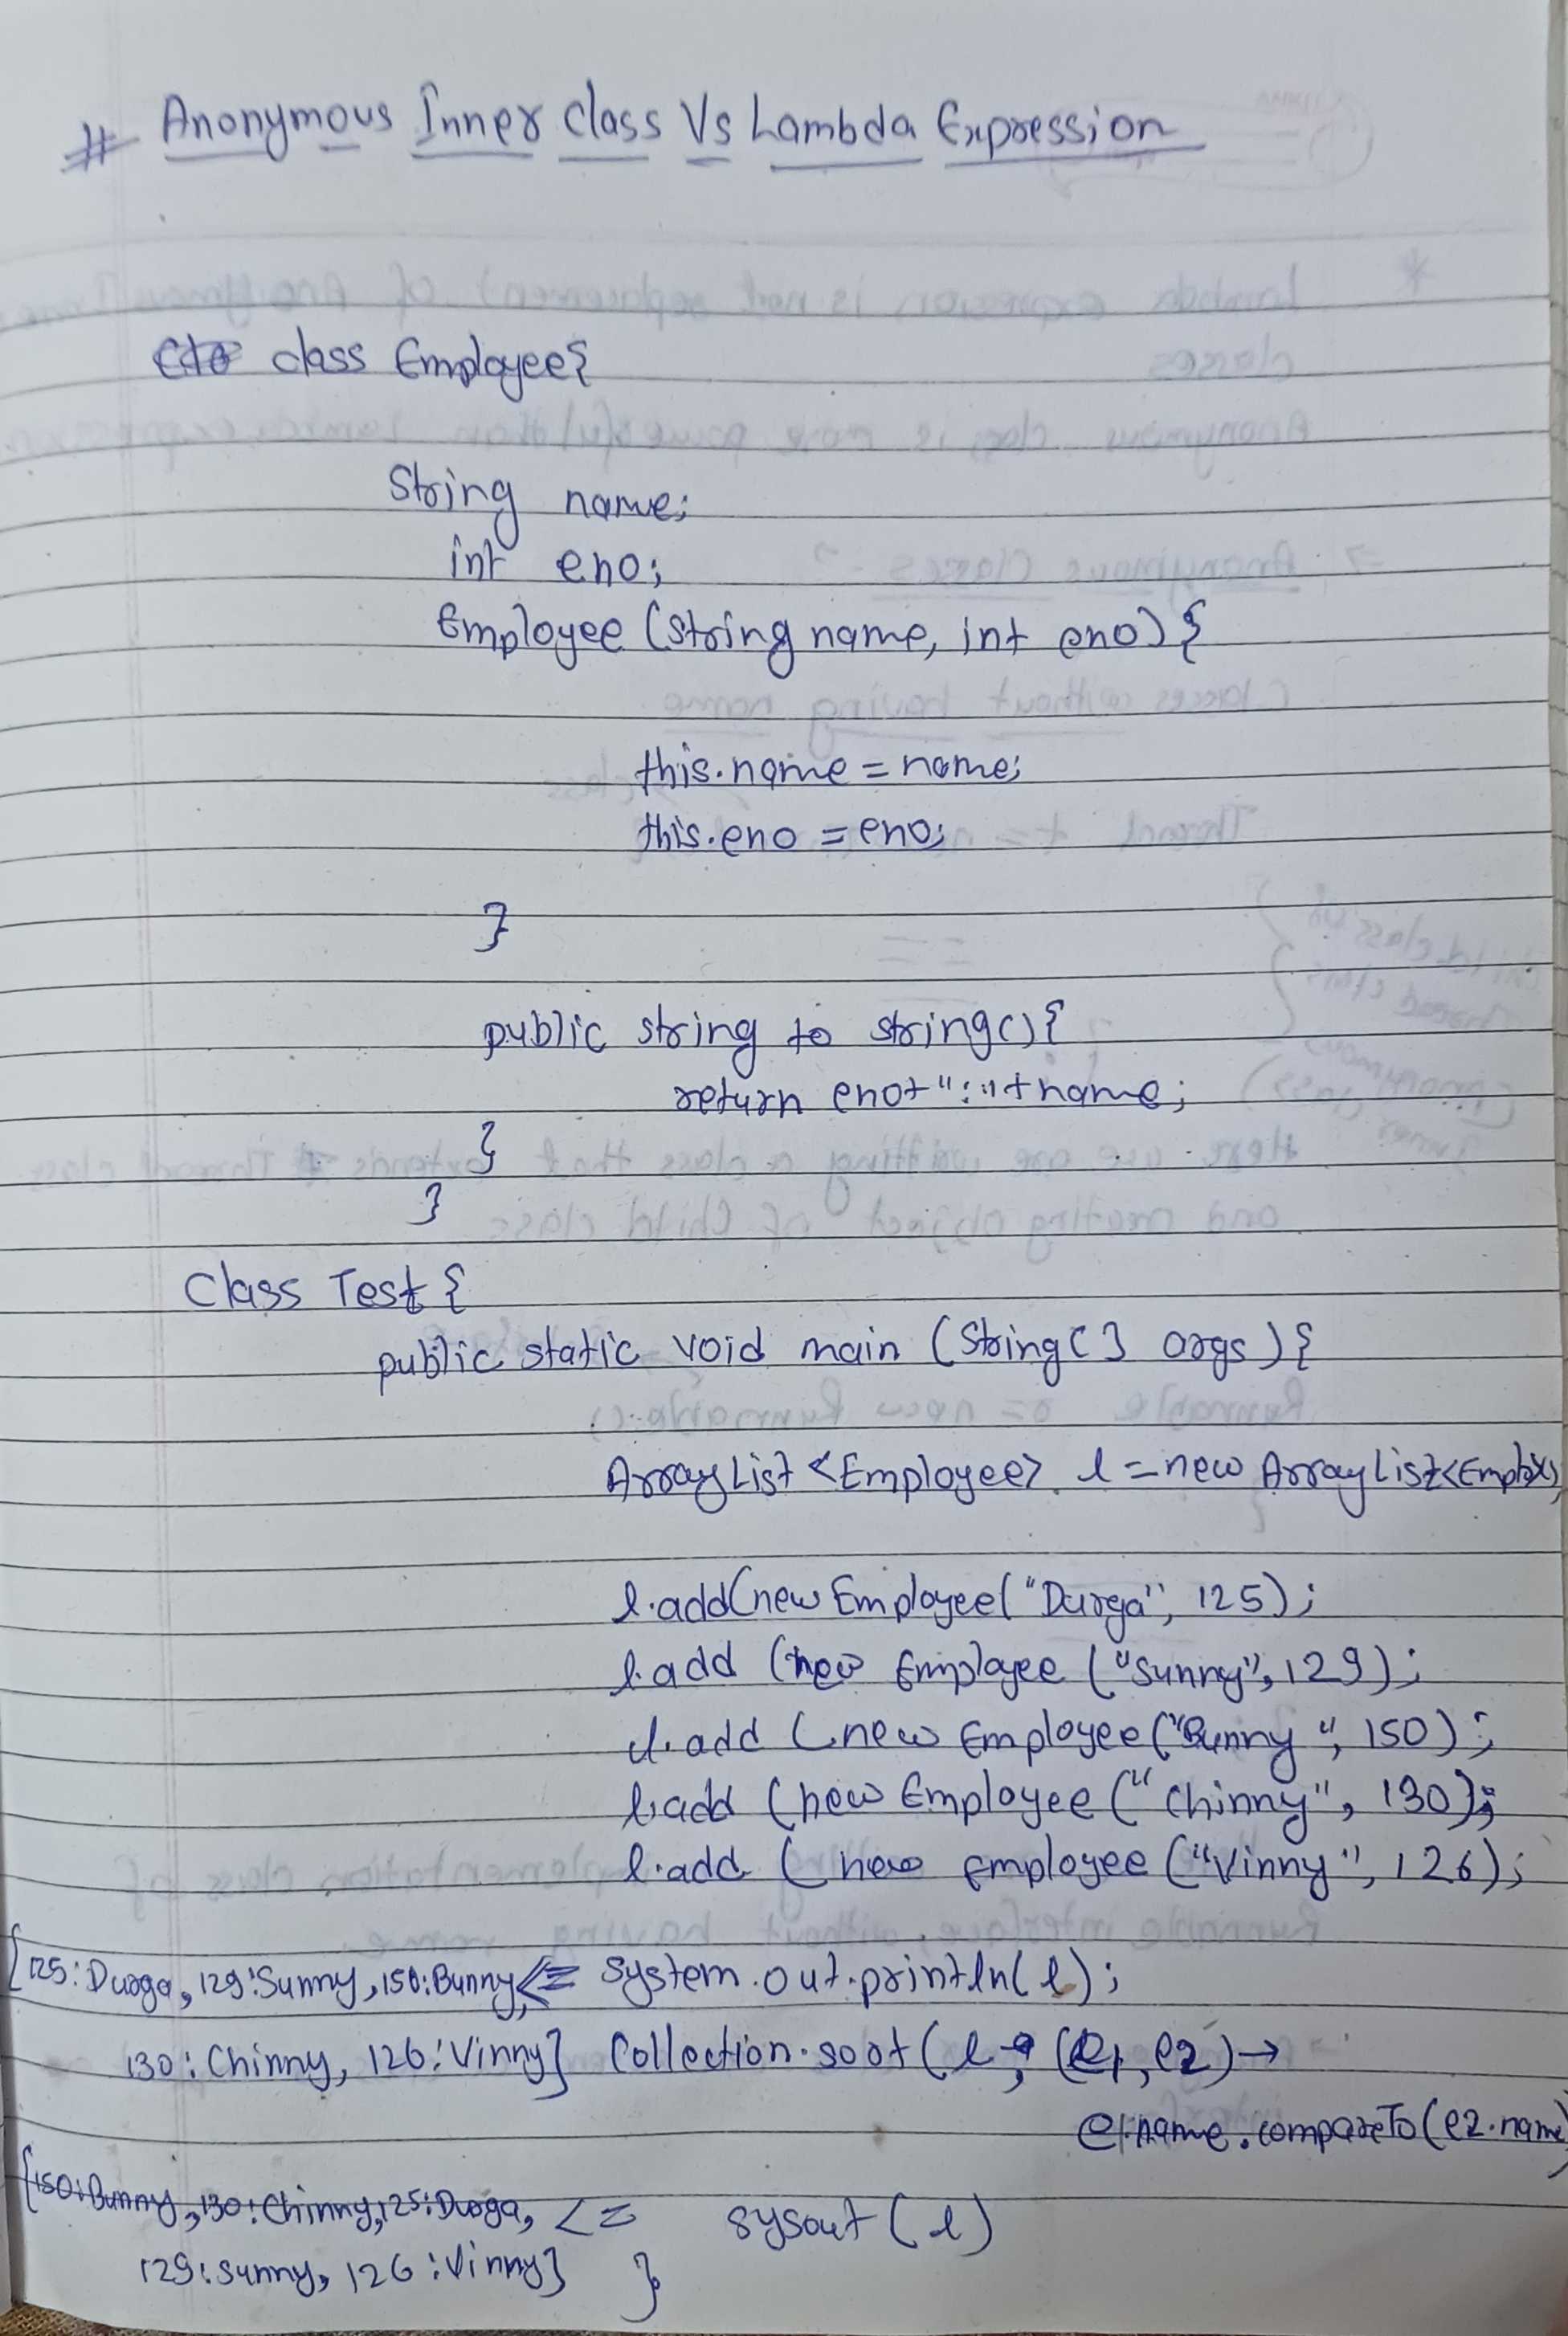 # Anonymous Inner Class Vs Lambda Expression
class Employee{
String name;
int eno;
Employee (String name, int eno) {
this.name = name;
this.eno = eno;
}
public string to string() {
return eno+":"+name;
}
}
Class Test {
public static void main (String [] args) {
ArrayList <Employee> l = new ArrayList
l.add(new Employee("Durga", 125);
l.add (new Employee ("Sunny", 129);
l.add (new Employee ("Bunny", 150);
l.add (new Employee ("Chinny", 130);
l.add (new Employee ("Vinny", 126);
[125:Durga, 129:Sunny, 150:Bunny, <= System.out.println(l);
130:Chinny, 126:Vinny] Collection.sort(l, (e1, e2) →
e1.name.compareTo(e2.name)
[150:Bunny, 130:Chinny, 125:Durga, <= sysout(l)
129:Sunny, 126:Vinny] }